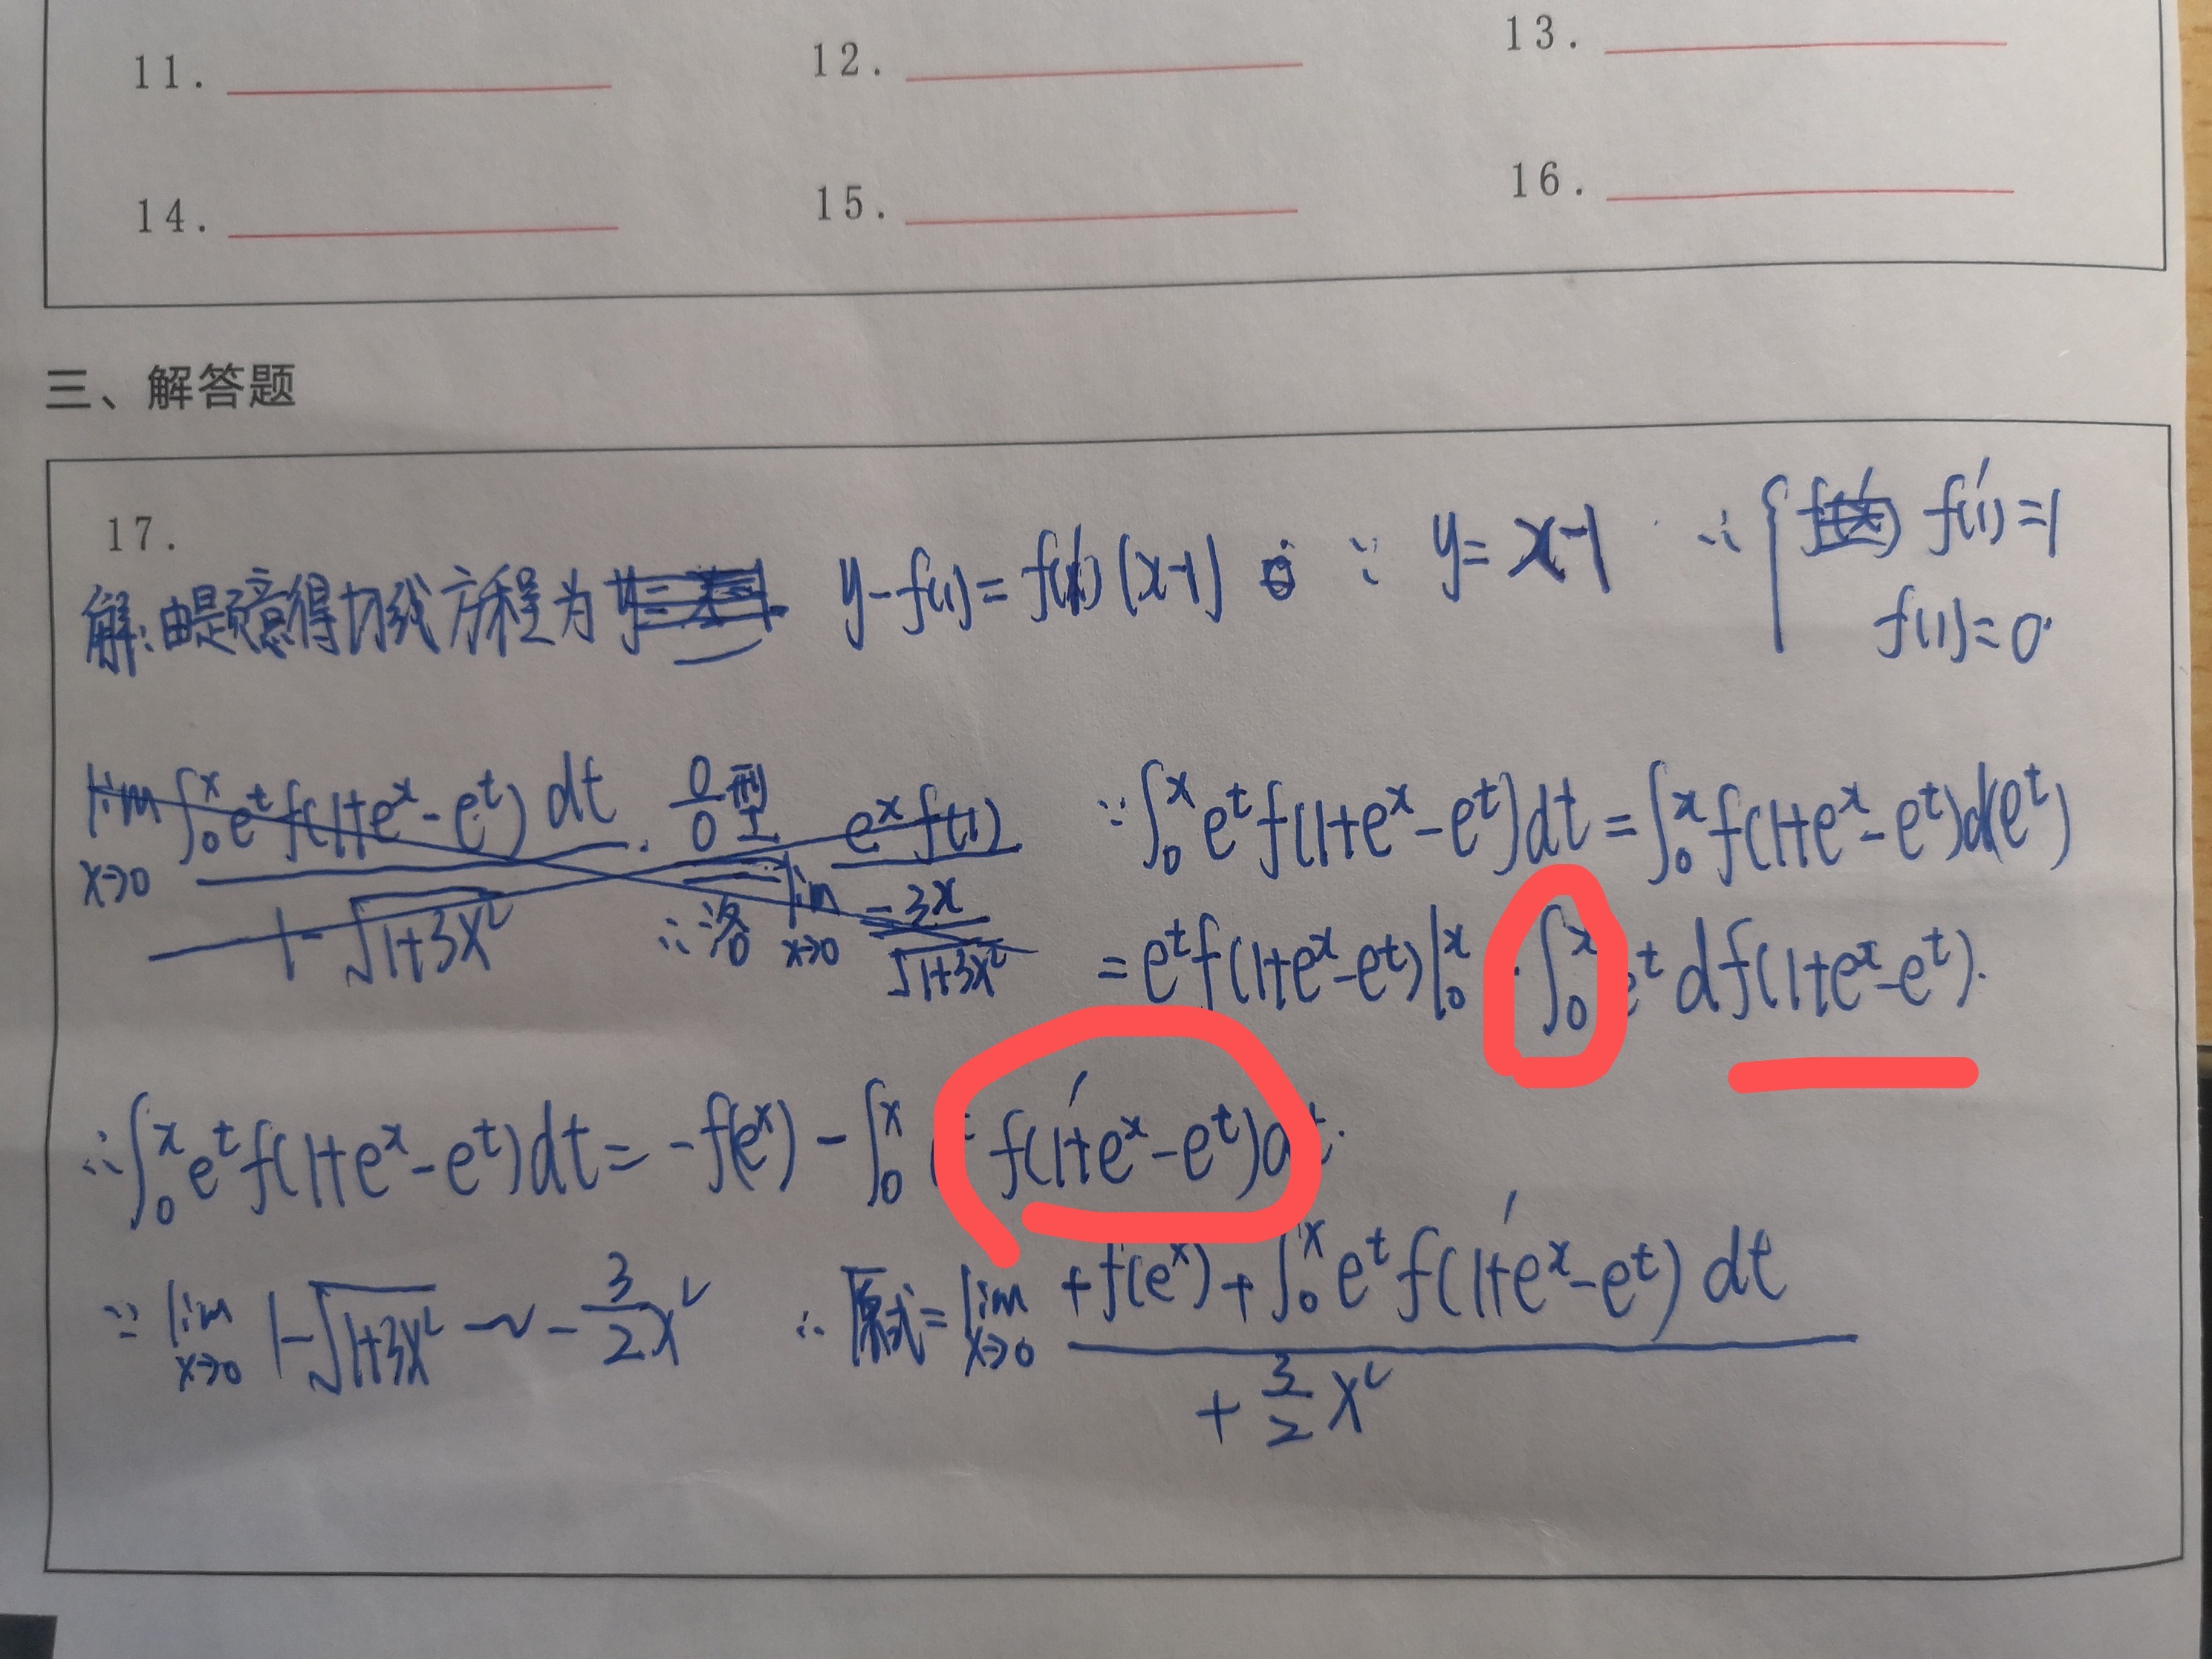 11. 12. 13.
14. 15. 16.
三、解答题
17.
解:由题意得切线方程为 y-f(1)=f'(1)(x-1) ∵ y=x-1 ∴ { f'(1)=1
f(1)=0.
lim x→0 ∫₀ˣ eᵗf(1+eˣ-eᵗ)dt / 1-√(1+3x²) 0/0型 ∴洛 lim x→0 eˣf(1) / (-3x/√(1+3x²)) ∵∫₀ˣ eᵗf(1+eˣ-eᵗ)dt=∫₀ˣ f(1+eˣ-eᵗ)d(eᵗ)
=eᵗf(1+eˣ-eᵗ)|₀ˣ - ∫₀ˣ eᵗ df(1+eˣ-eᵗ).
∴∫₀ˣ eᵗf(1+eˣ-eᵗ)dt=-f(eˣ)-∫₀ˣ eᵗ f'(1+eˣ-eᵗ)dt.
∵ lim x→0 1-√(1+3x²) ~ -3/2 x² ∴原式=lim x→0 +f(eˣ)+∫₀ˣ eᵗf'(1+eˣ-eᵗ)dt / +3/2 x²